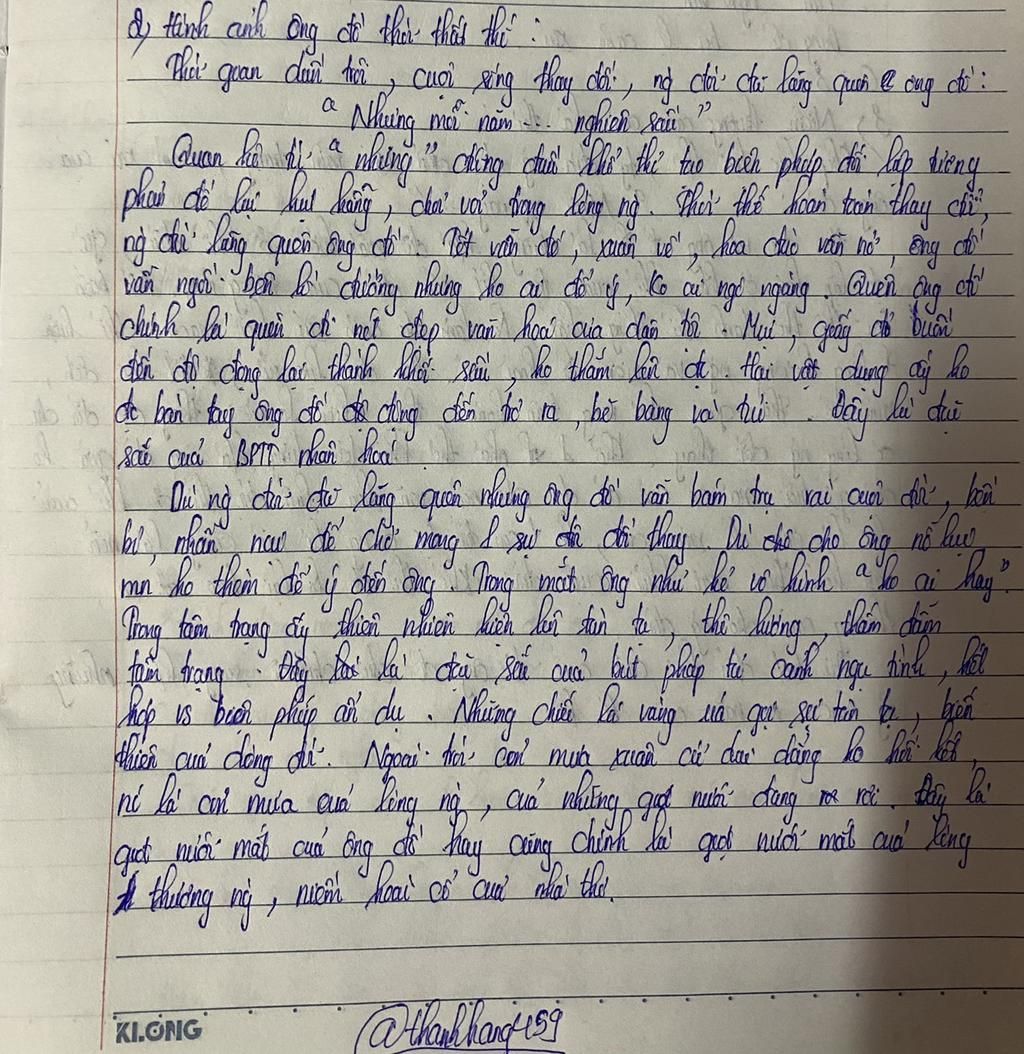 2) Hình ảnh ông đồ thời thất thế:
Thời gian dần trôi, cuộc sống thay đổi, ng đời đã lãng quên ông đồ:
"Nhưng mỗi năm... nghiên sầu"
Quan hệ từ "nhưng" đứng đầu khổ thơ tạo biện pháp đối lập tương
phản để lại hụt hẫng, chơi vơi trong lòng ng. Thời thế hoàn toàn thay đổi,
ng đời lãng quên ông đồ. Tết vẫn đế, xuân về, hoa đào vẫn nở, ông đồ
vẫn ngồi bên hè đường nhưng ko ai để ý, ko ai ngó ngàng. Quên ông đồ
chính là quên đi nét đẹp văn hoá của dân tộc. Mực, giấy đỏ buồn
đến độ đọng lại thành khối sầu, ko thắm lên đc. Hai vật dụng ấy ko
đc bàn tay ông đồ động đến trở ra, bẽ bàng và tủi. Đây là đặc
sắc của BPTT nhân hoá.
Dù ng đời đã lãng quên nhưng ông đồ vẫn bám trụ vai cuộc đời, bền
bỉ, nhẫn nại để chờ mong 1 sự đổi thay. Dù cho ông nỗ lực
mn ko thèm để ý đến ông. Trong mắt ông như kẻ vô hình "ko ai hay".
Trong tâm trạng ấy thiên nhiên hiện lên tàn tạ, thê lương, thấm đẫm
tâm trạng. Đây lại là đặc sắc của bút pháp tả cảnh ngụ tình, kết
hợp vs biện pháp ẩn dụ. Những chiếc lá vàng úa gợi sự tàn tạ, biến
thiên của dòng đời. Ngoài trời cơn mưa xuân cứ dai dẳng ko hồi kết,
nó là cơn mưa của lòng ng, của những giọt nước đang rơi. Đây là
giọt nước mắt của ông đồ hay cũng chính là giọt nước mắt của lòng
thương ng, niềm hoài cổ của nhà thơ.
KLONG
@thanhhang459